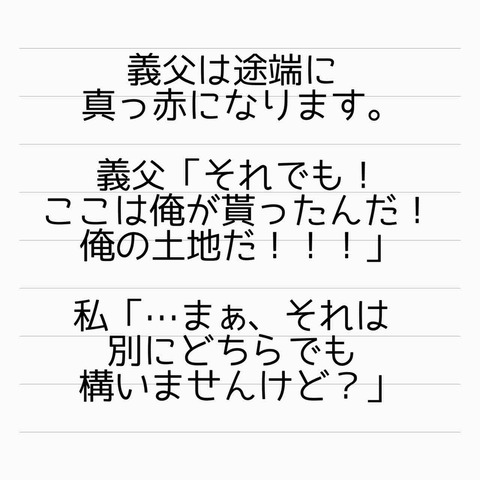 義父は途端に
真っ赤になります。
義父「それでも！
ここは俺が貰ったんだ！
俺の土地だ！！！」
私「…まぁ、それは
別にどちらでも
構いませんけど？」